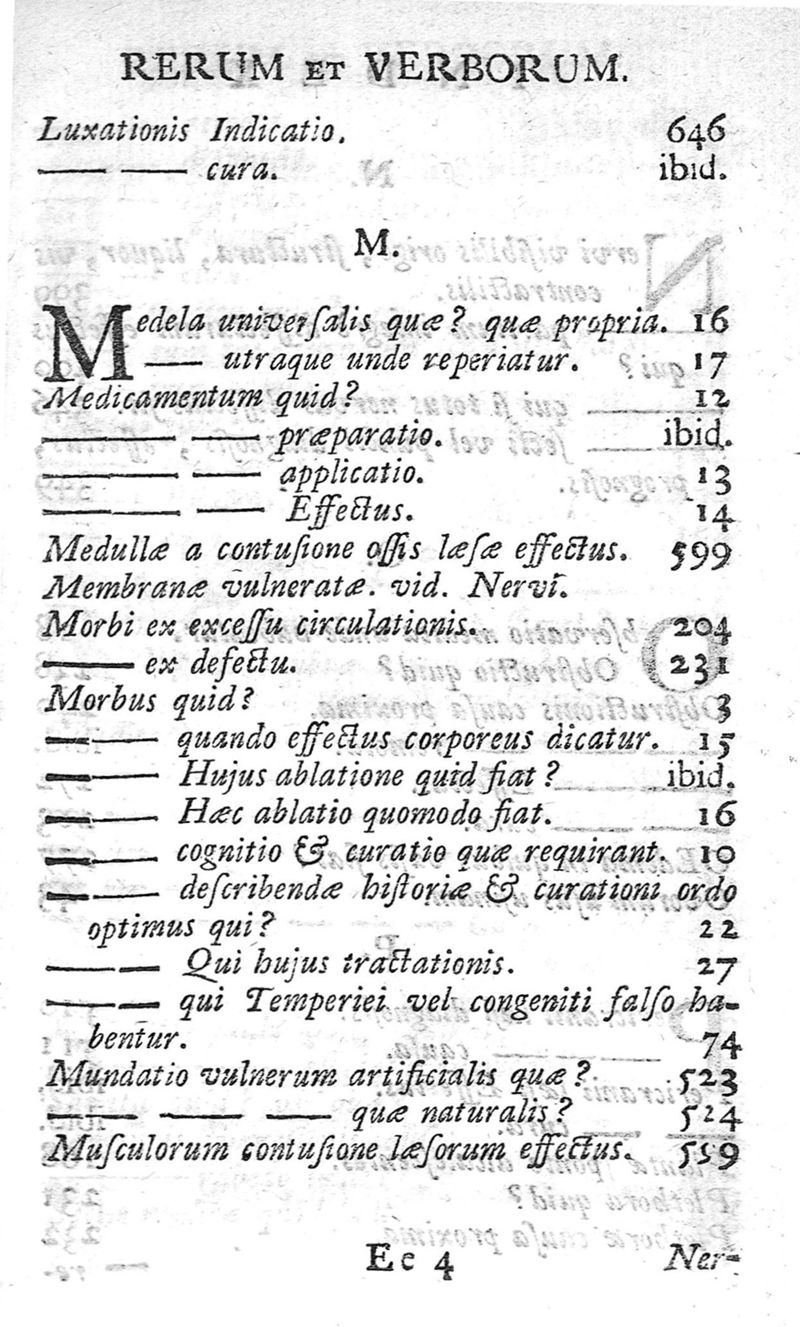 RERUM ET VERBORUM.
Luxationis Indicatio. 646
—— —— cura. ibid.
M.
Medela univerſalis quæ? quæ propria. 16
—— utraque unde reperiatur. 17
Medicamentum quid? 12
—— —— præparatio. ibid.
—— —— applicatio. 13
—— —— Effectus. 14
Medullæ a contuſione oſſis læſæ effectus. 599
Membranæ vulneratæ. vid. Nervi.
Morbi ex exceſſu circulationis. 204
—— ex defectu. 231
Morbus quid? 3
—— quando effectus corporeus dicatur. 15
—— Hujus ablatione quid fiat? ibid.
—— Hæc ablatio quomodo fiat. 16
—— cognitio & curatio quæ requirant. 10
—— deſcribendæ hiſtoriæ & curationi ordo
optimus qui? 22
—— Qui hujus tractationis. 27
—— qui Temperiei vel congeniti falſo ha-
bentur. 74
Mundatio vulnerum artificialis quæ? 523
—— —— —— quæ naturalis? 524
Muſculorum contuſione læſorum effectus. 559
Ee 4 Ner-